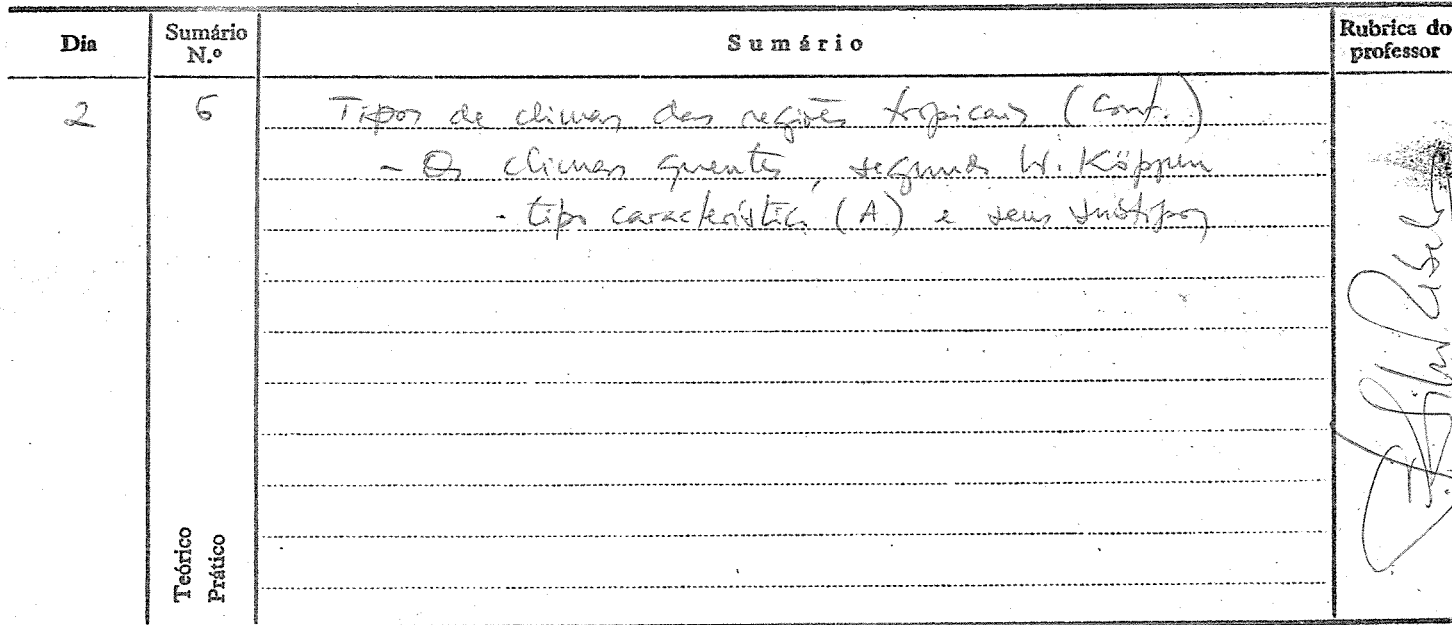 Dia Sumário N.º Sumário Rubrica do professor
2 6 Tipos de climas das regiões tropicais (Cont.)
- Os climas quentes, segundo W. Köppen
- tipo característico (A) e seus subtipos
Teórico
Prático